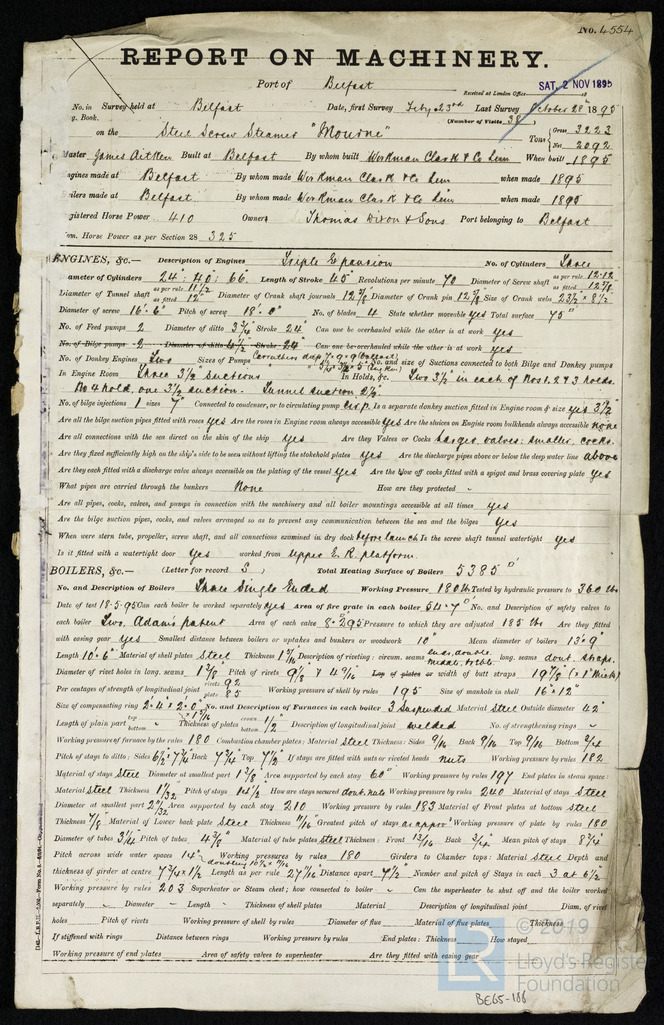 No. 4554
REPORT ON MACHINERY.
Port of Belfast
Received at London Office SAT. 2 NOV 1895 18
No. in Survey held at Belfast Date, first Survey Feby 23rd Last Survey October 28th 1895
g. Book. (Number of Visits 38)
on the Steel Screw Steamer "Mourne" Tons Gross 3223 Net 2092
Master James Aitken Built at Belfast By whom built Workman Clark & Co Lim When built 1895
ngines made at Belfast By whom made Workman Clark & Co Lim when made 1895
oilers made at Belfast By whom made Workman Clark & Co Lim when made 1895
gistered Horse Power 410 Owners Thomas Dixon & Sons Port belonging to Belfast
om. Horse Power as per Section 28 325
ENGINES, &c.— Description of Engines Triple Expansion No. of Cylinders Three
ameter of Cylinders 24": 40": 66" Length of Stroke 45" Revolutions per minute 70 Diameter of Screw shaft as per rule 12.12 as fitted 12 7/8
Diameter of Tunnel shaft as per rule 11 1/2 as fitted 12" Diameter of Crank shaft journals 12 7/8 Diameter of Crank pin 12 7/8 Size of Crank webs 23 1/2 × 8 1/2
Diameter of screw 16'.6" Pitch of screw 18'.0" No. of blades 4 State whether moveable yes Total surface 75
No. of Feed pumps 2 Diameter of ditto 3 3/4 Stroke 24" Can one be overhauled while the other is at work yes
No. of Bilge pumps 2 Diameter of ditto 4 1/2 Stroke 24" Can one be overhauled while the other is at work yes
No. of Donkey Engines Two Sizes of Pumps No. and size of Suctions connected to both Bilge and Donkey pumps
In Engine Room Three 3 1/2 suctions In Holds, &c. Two 3 1/2 in each of Nos 1, 2 & 3 holds.
No 4 hold, one 3 1/2 suction. Tunnel suction 2 1/2.
No. of bilge injections 1 sizes 7" Connected to condenser, or to circulating pump cir p. Is a separate donkey suction fitted in Engine room & size yes 3 1/2
Are all the bilge suction pipes fitted with roses yes Are the roses in Engine room always accessible yes Are the sluices on Engine room bulkheads always accessible none
Are all connections with the sea direct on the skin of the ship yes Are they Valves or Cocks Larger valves: smaller, cocks.
Are they fixed sufficiently high on the ship's side to be seen without lifting the stokehold plates yes Are the discharge pipes above or below the deep water line above
Are they each fitted with a discharge valve always accessible on the plating of the vessel yes Are the blow off cocks fitted with a spigot and brass covering plate yes
What pipes are carried through the bunkers None How are they protected -
Are all pipes, cocks, valves, and pumps in connection with the machinery and all boiler mountings accessible at all times yes
Are the bilge suction pipes, cocks, and valves arranged so as to prevent any communication between the sea and the bilges yes
When were stern tube, propeller, screw shaft, and all connections examined in dry dock before launch Is the screw shaft tunnel watertight yes
Is it fitted with a watertight door yes worked from Upper E. R. platform.
BOILERS, &c.— (Letter for record S) Total Heating Surface of Boilers 5385
No. and Description of Boilers Three Single Ended Working Pressure 180 lb Tested by hydraulic pressure to 360 lbs
Date of test 18.5.95 Can each boiler be worked separately yes Area of fire grate in each boiler 54.7 No. and Description of safety valves to
each boiler Two. Adam's patent Area of each valve 8.295 Pressure to which they are adjusted 185 lbs Are they fitted
with easing gear yes Smallest distance between boilers or uptakes and bunkers or woodwork 10" Mean diameter of boilers 13'.9"
Length 10'.6" Material of shell plates Steel Thickness 1 3/16 Description of riveting: circum. seams ends, double, middle, treble long. seams doub. straps.
Diameter of rivet holes in long. seams 1 3/8 Pitch of rivets 9 1/8 & 4 9/16 Lap of plates or width of butt straps 19 7/8 (× 1" thick)
Per centages of strength of longitudinal joint rivets 92 plates 85 Working pressure of shell by rules 195 Size of manhole in shell 16" × 12"
Size of compensating ring 2'.4" × 2'.0" × 1 3/16 No. and Description of Furnaces in each boiler 3 Suspended Material Steel Outside diameter 42"
Length of plain part top bottom Thickness of plates crown bottom 1/2 Description of longitudinal joint welded No. of strengthening rings -
Working pressure of furnace by the rules 180 Combustion chamber plates: Material Steel Thickness: Sides 9/16 Back 9/16 Top 9/16 Bottom 3/4
Pitch of stays to ditto: Sides 6 1/2 × 7 3/4 Back 7 3/4 Top 7 1/2 If stays are fitted with nuts or riveted heads nuts Working pressure by rules 182
Material of stays Steel Diameter at smallest part 1 3/8 Area supported by each stay 60" Working pressure by rules 197 End plates in steam space:
Material Steel Thickness 1 1/32 Pitch of stays 14 1/2 How are stays secured doub. nuts Working pressure by rules 240 Material of stays Steel
Diameter at smallest part 2 7/32 Area supported by each stay 210 Working pressure by rules 183 Material of Front plates at bottom Steel
Thickness 7/8 Material of Lower back plate Steel Thickness 11/16 Greatest pitch of stays as approv'd Working pressure of plate by rules 180
Diameter of tubes 3 1/4 Pitch of tubes 4 3/8 Material of tube plates Steel Thickness: Front 13/16 Back 3/4 Mean pitch of stays 8 3/4
Pitch across wide water spaces 14" Working pressures by rules 180 Girders to Chamber tops: Material Steel Depth and
thickness of girder at centre 7 3/4 × 1 1/2 Length as per rule 27 7/16 Distance apart 7 1/2 Number and pitch of Stays in each 3 at 6 1/2"
Working pressure by rules 203 Superheater or Steam chest; how connected to boiler - Can the superheater be shut off and the boiler worked
separately - Diameter - Length - Thickness of shell plates Material Description of longitudinal joint Diam. of rivet
holes Pitch of rivets Working pressure of shell by rules Diameter of flue Material of flue plates Thickness
If stiffened with rings Distance between rings Working pressure by rules End plates: Thickness How stayed
Working pressure of end plates Area of safety valves to superheater Are they fitted with easing gear
© 2019
LR Lloyd's Register
Foundation
BE65-186